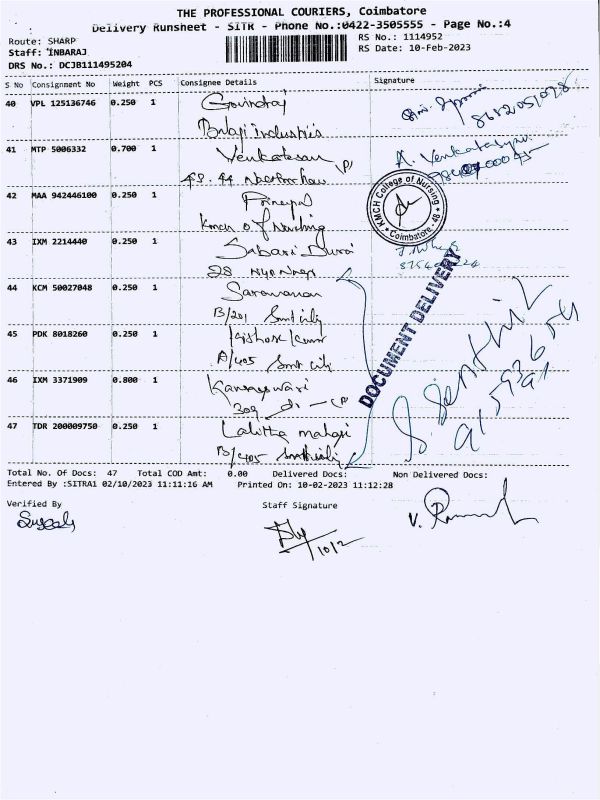 THE PROFESSIONAL COURIERS, Coimbatore
Delivery Runsheet - SITR - Phone No.:0422-3505555 - Page No.:4
Route: SHARP
RS No.: 1114952
Staff: INBARAJ
RS Date: 10-Feb-2023
DRS No.: DCJB111495204
S No Consignment No Weight PCS Consignee Details Signature
40 VPL 125136746 0.250 1 Govindraj
Balaji industries
41 MTP 5006332 0.700 1 Venkatesan
A. Venkatesan
42 MAA 942446100 0.250 1 Principal
Kmch of Nursing
KMCH College of Nursing
* Coimbatore - 48 *
43 IXM 2214440 0.250 1 Sabari Durai
28
44 KCM 50027048 0.250 1 Saravanan
B/201 Smt city
DOCUMENT DELIVERY
45 PDK 8018260 0.250 1 Kishore Kumar
A/405 Smt city
46 IXM 3371909 0.800 1 Kannageswari
309
S. Senthil
47 TDR 200009750 0.250 1 Lalitha
B/405
Total No. Of Docs: 47 Total COD Amt: 0.00 Delivered Docs: Non Delivered Docs:
Entered By :SITRA1 02/10/2023 11:11:16 AM Printed On: 10-02-2023 11:12:28
Verified By
Staff Signature
10/2